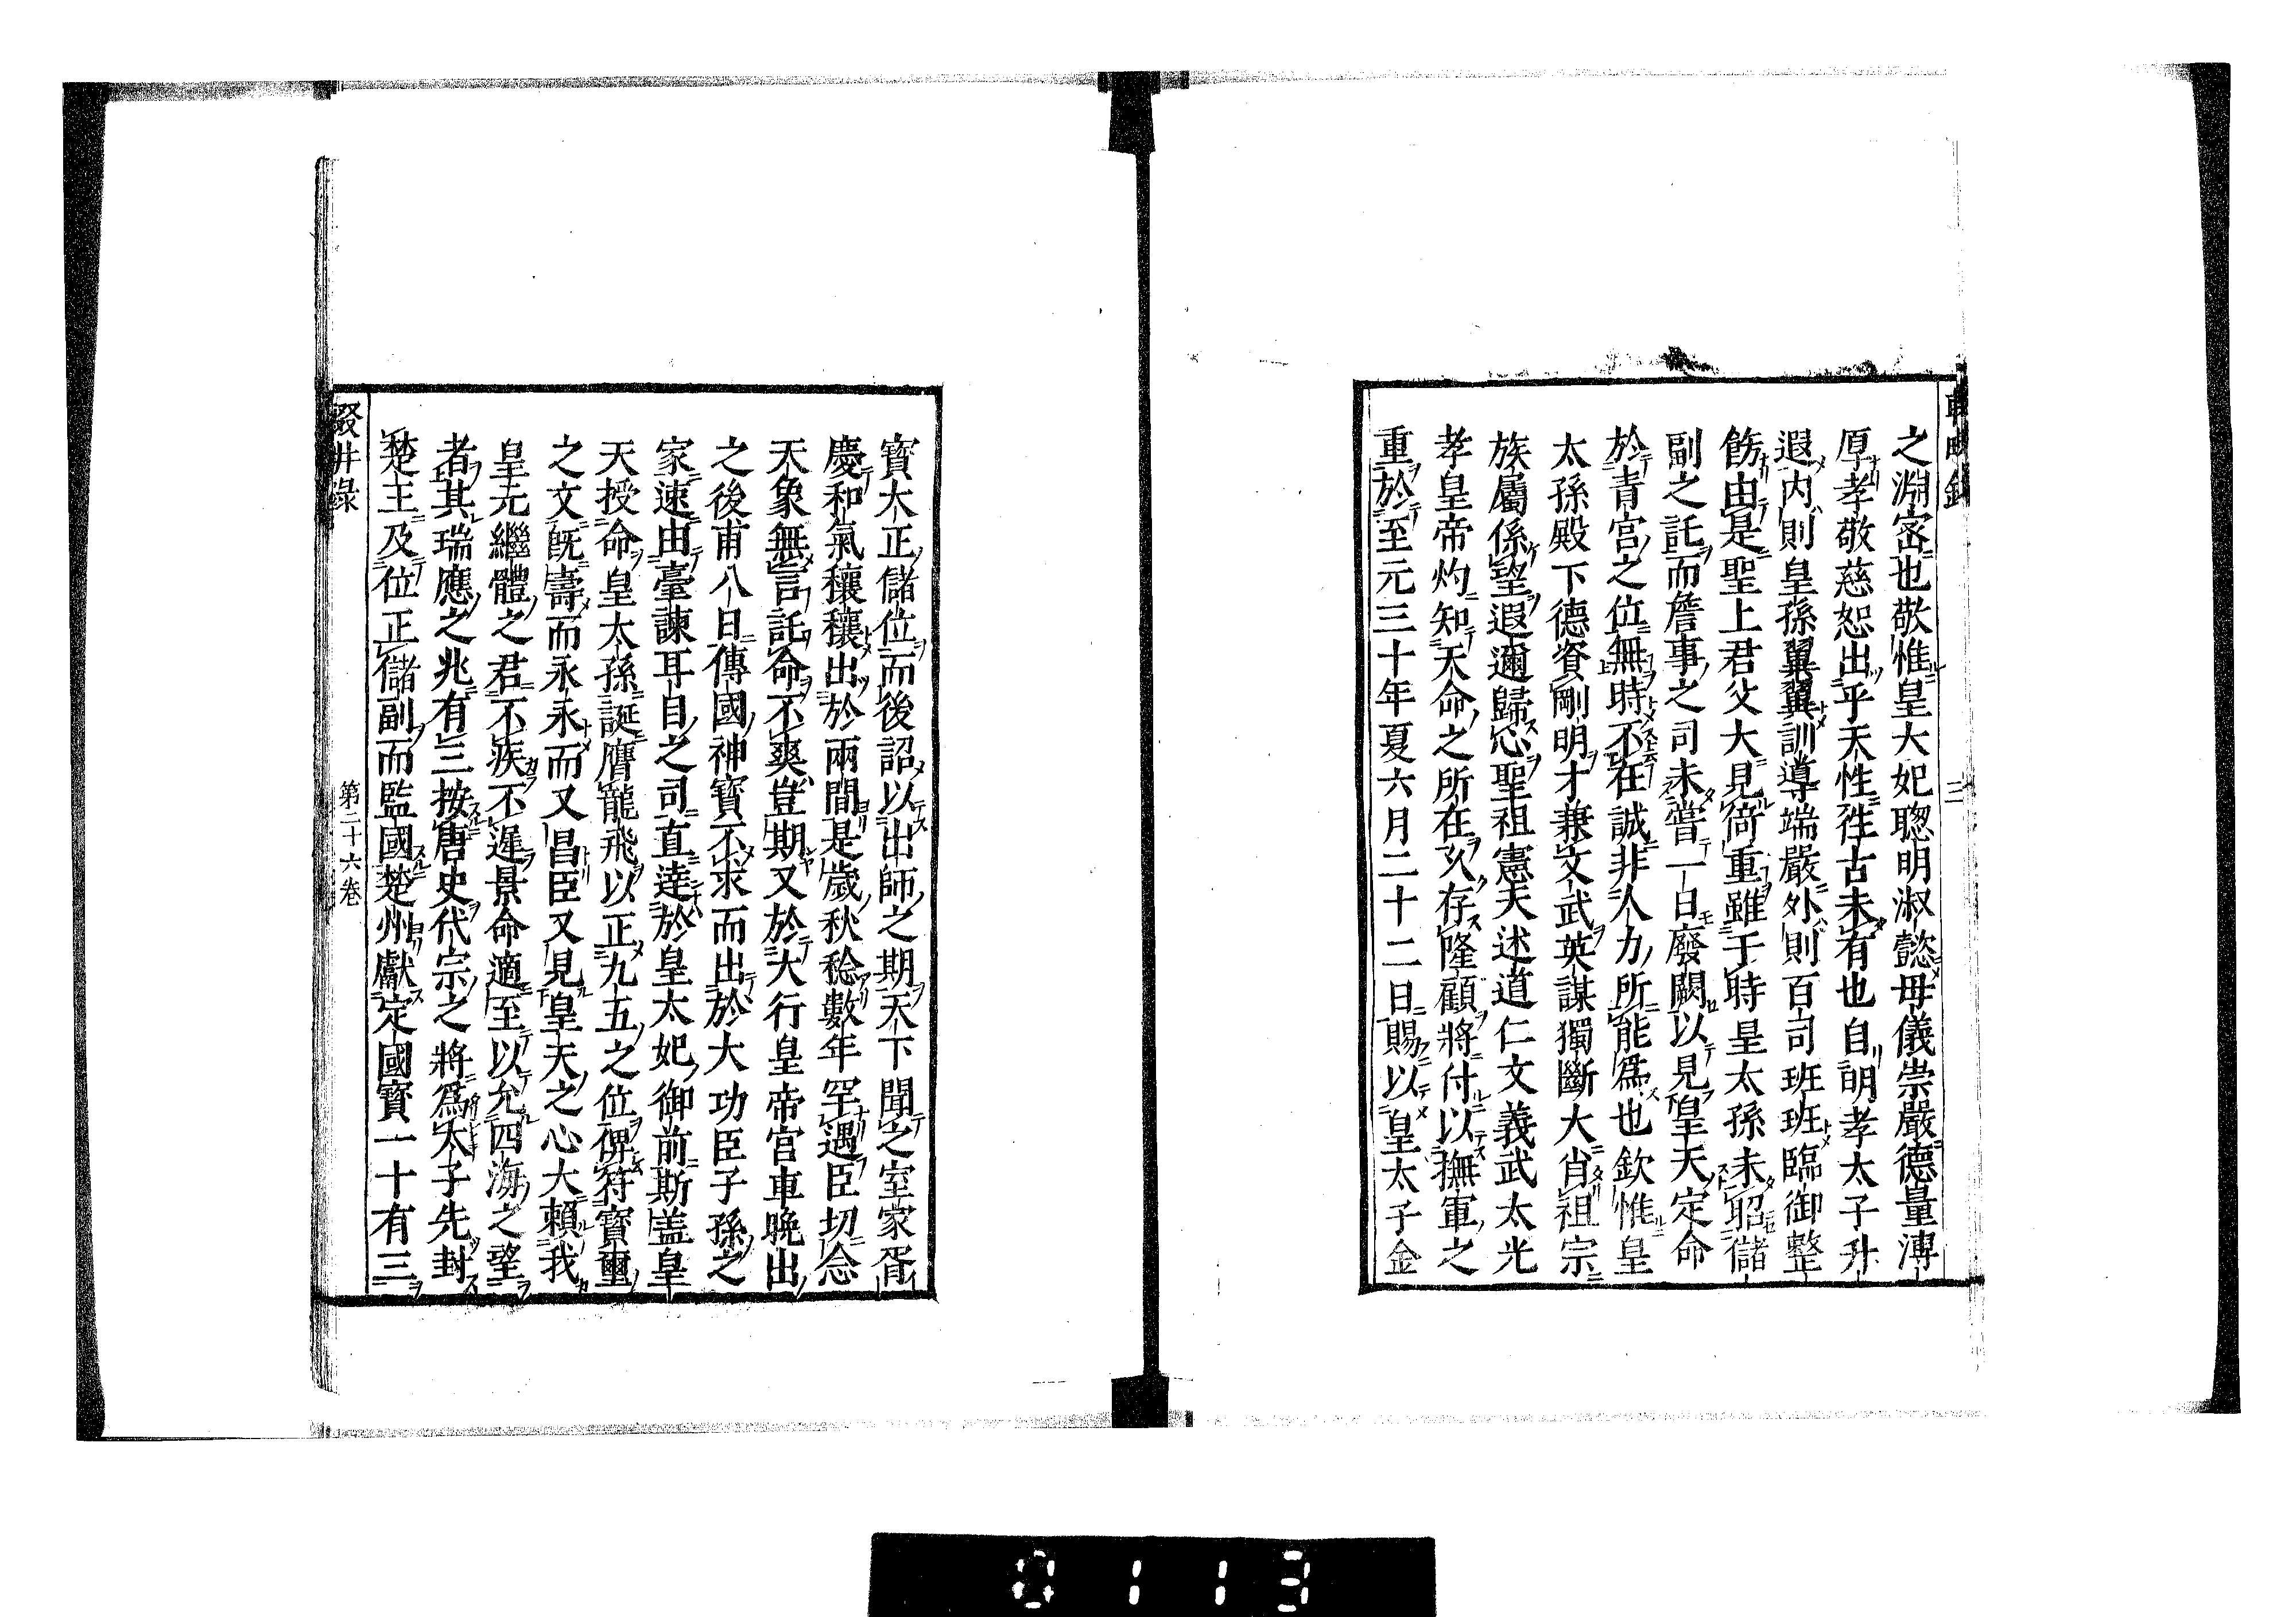 之淵密也敬惟皇大妃聰明淑懿母儀崇嚴德量溥
厚孝敬慈恕出乎天性徃古未有也自明孝太子升
遐内則皇孫翼翼訓導端嚴外則百司班班臨御整
飭由是聖上君父大見倚重雖于時皇太孫未昭儲
副之託而詹事之司未嘗一日廢闕以見皇天定命
於青宮之位無時不在誠非人力所能爲也欽惟皇
太孫殿下德資剛明才兼文武英謀獨斷大肖祖宗
族屬係望遐邇歸心聖祖憲天述道仁文義武太光
孝皇帝灼知天命之所在久存隆顧將付以撫軍之
重於至元三十年夏六月二十二日賜以皇太子金
三
寳大正儲位而後詔以出師之期天下聞之室家胥
慶和氣穰穰出於兩間是歳秋稔數年罕遇臣切念
天象無言託命不爽豈期又於大行皇帝宮車晩出
之後甫八日傳國神寳不求而出於大功臣子孫之
家速由臺諫耳目之司直達於皇太妃御前斯盖皇
天授命皇太孫誕膺龍飛以正九五之位俾符寳璽
之文旣壽而永永而又昌臣又見皇天之心大頼我
皇元繼體之君不疾不遲景命適至以允四海之望
者其瑞應之兆有三按唐史代宗之將爲太子先封
楚王及位正儲副而監國楚州獻定國寳一十有三
輟耕録
第二十六卷
0113